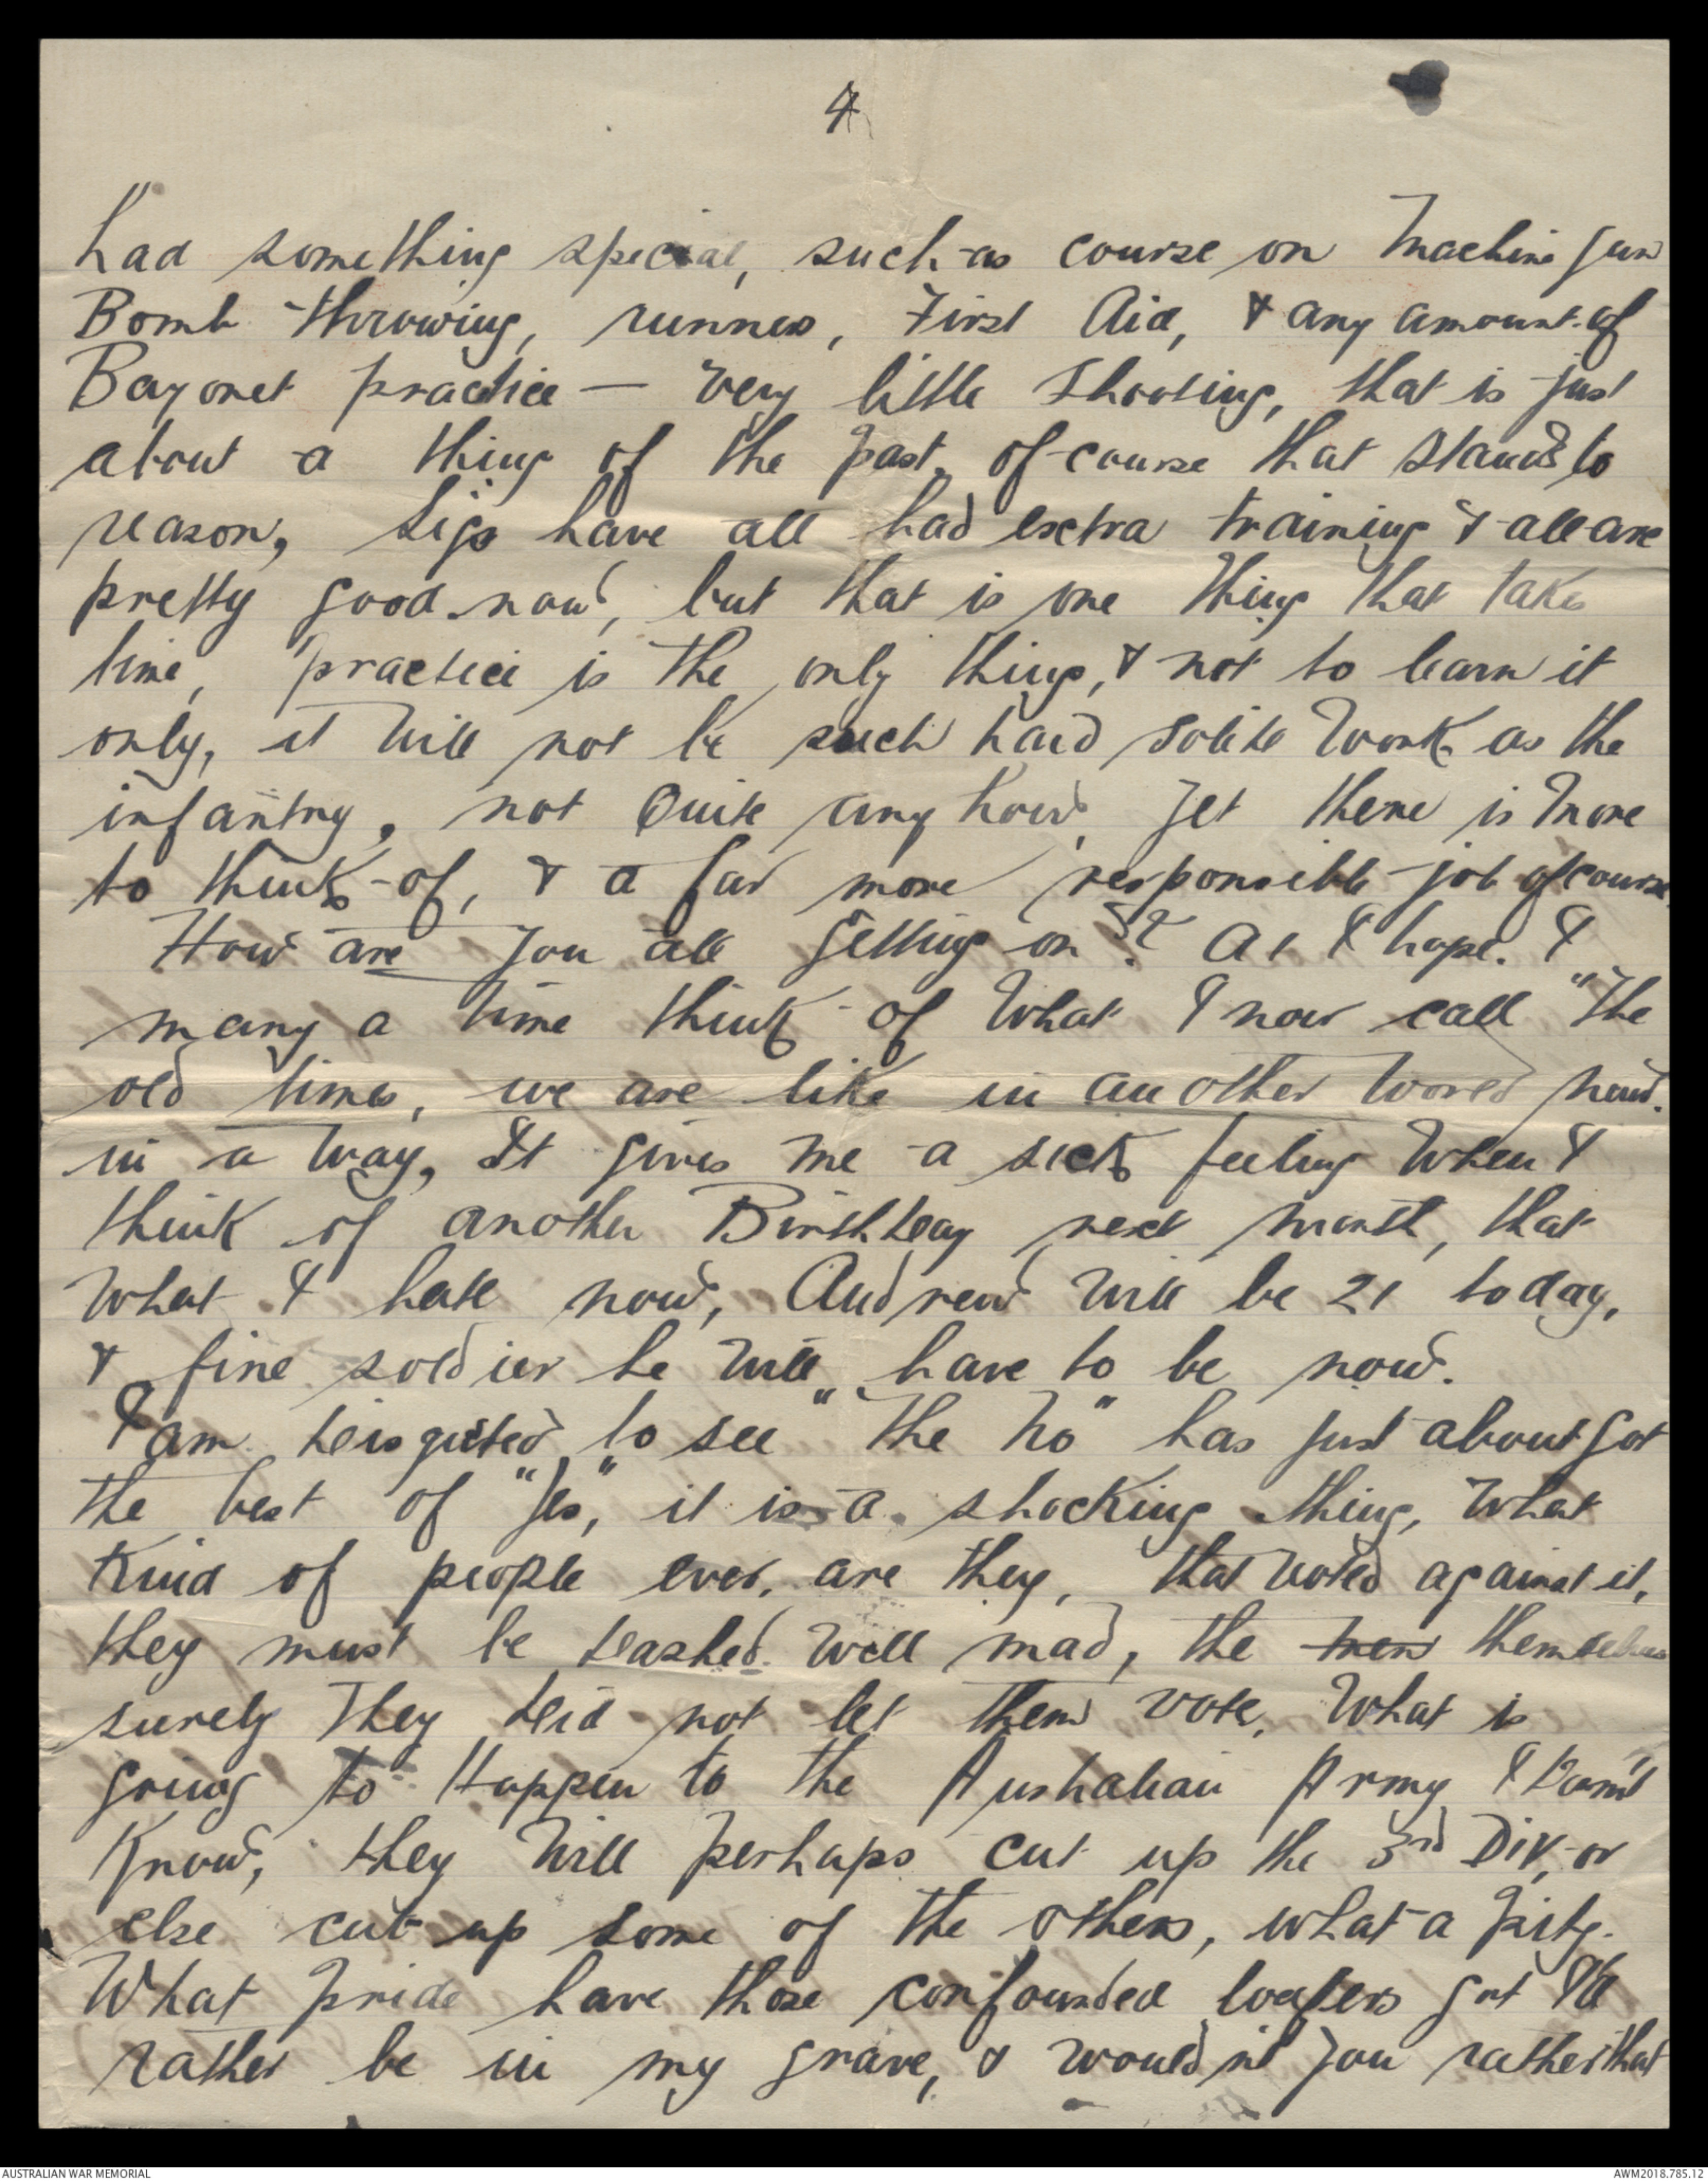 4
had something special, such as course on Machine Gun
Bomb throwing, runner, First Aid, & any amount of
Bayonet practice — very little shooting, that is just
about a thing of the past, of course that stands to
reason, Sigs have all had extra training & all are
pretty good now, but that is one thing that takes
time, practice is the only thing, & not to learn it
only, it will not be such hard solid work as the
infantry, not quite anyhow, yet there is more
to think of, & a far more responsible job of course.
How are you all getting on? A1 I hope. I
many a time think of what I now call "the
old times, we are like in another world now.
in a way, It gives me a sick feeling when I
think of another Birthday next month, that
what I hate now, Andrew will be 21 today,
& fine soldier he will have to be now.
I am disgusted to see "the No" has just about got
the best of "Yes", it is a shocking thing, what
kind of people ever, are they, that voted against it,
they must be dashed well mad, the men themselves
surely they did not let them vote, what is
going to Happen to the Australian Army I don't
know, they will perhaps cut up the 3rd Div, or
else cut up some of the others, what a pity.
What pride have those confounded loafers got I'd
rather be in my grave, & wouldn't you rather that
AUSTRALIAN WAR MEMORIAL
AWM2018.785.12